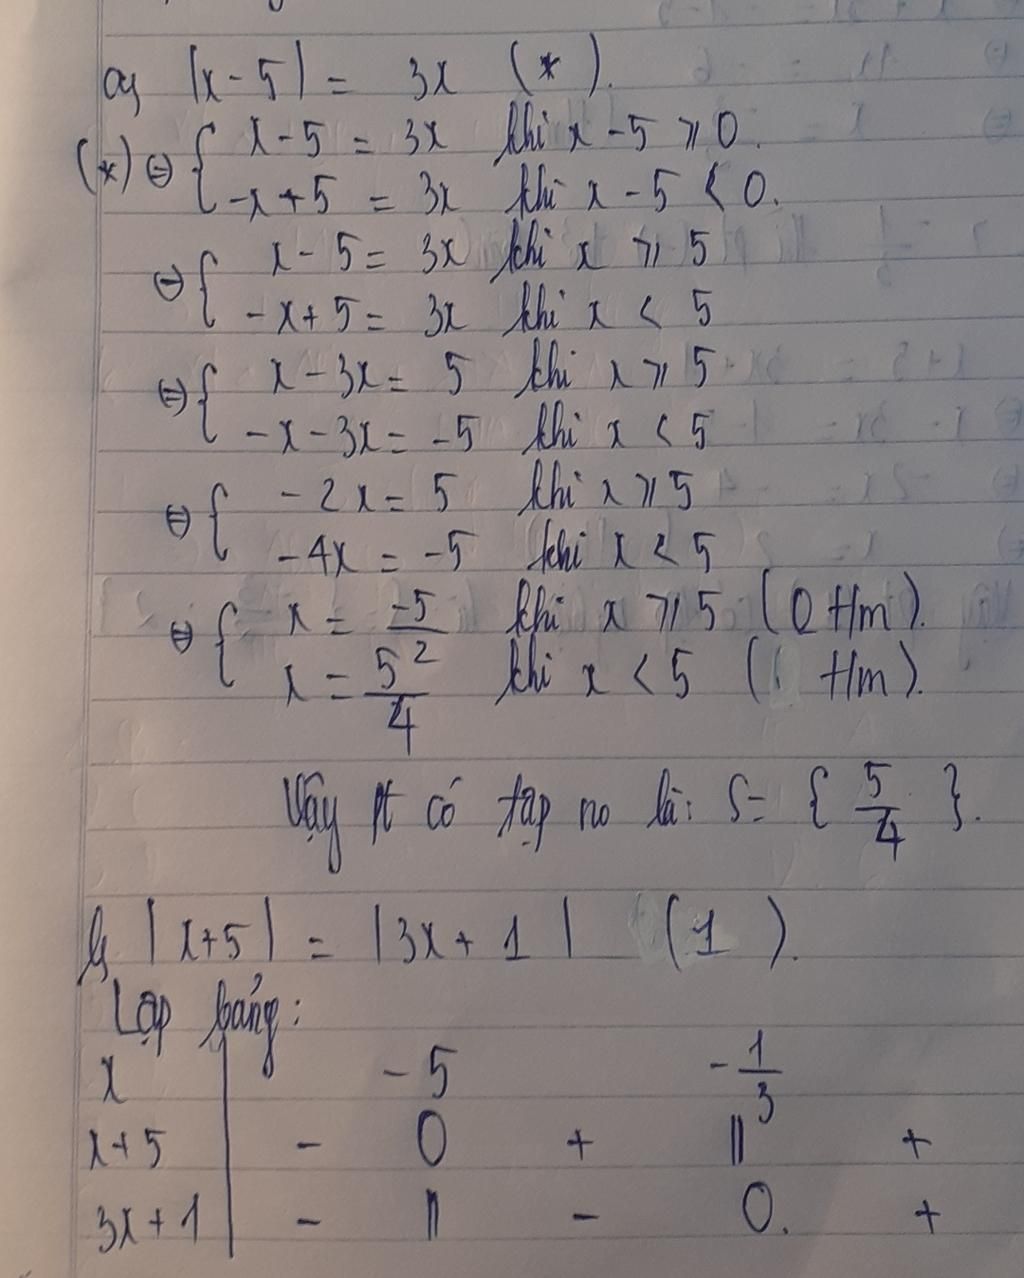 a, |x - 5| = 3x (*).
(*) ⇔ { x - 5 = 3x khi x - 5 ⩾ 0.
-x + 5 = 3x khi x - 5 < 0.
⇔ { x - 5 = 3x khi x ⩾ 5
-x + 5 = 3x khi x < 5
⇔ { x - 3x = 5 khi x ⩾ 5
-x - 3x = -5 khi x < 5
⇔ { -2x = 5 khi x ⩾ 5
-4x = -5 khi x < 5
⇔ { x = -5/2 khi x ⩾ 5 (0 t/m).
x = 5/4 khi x < 5 ( t/m).
Vậy pt có tập no là: S = { 5/4 }.
b, |x + 5| = |3x + 1| (1).
Lập bảng:
x | -5 -1/3
x + 5 | - 0 + || +
3x + 1 | - || - 0. +